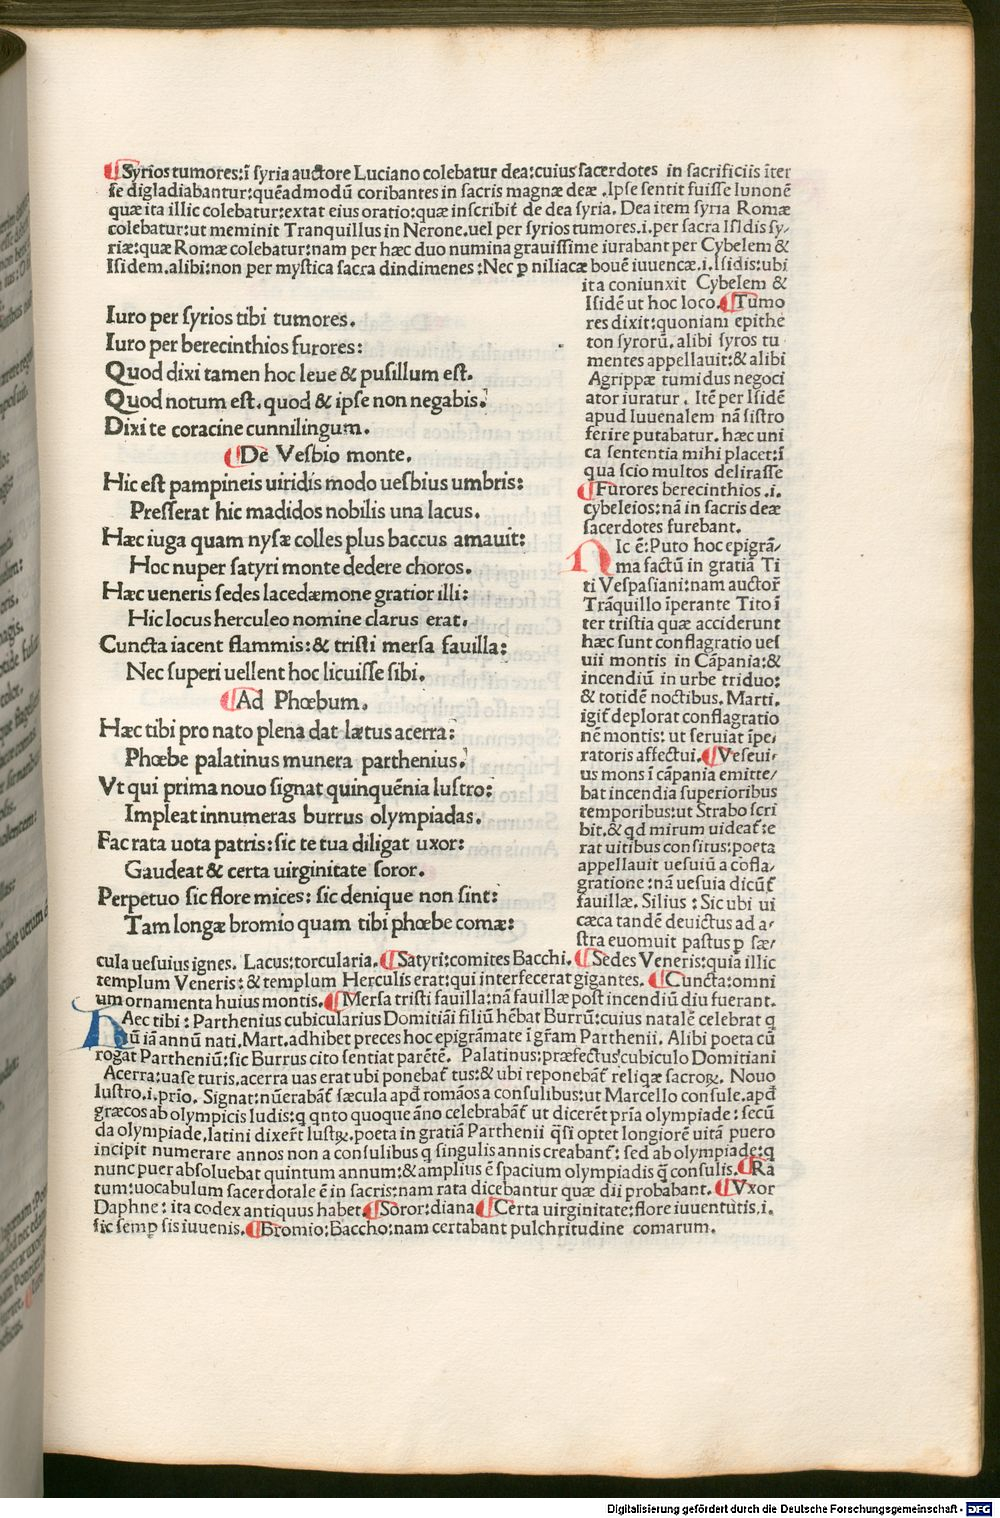 ¶Syrios tumores:ī syria auctore Luciano colebatur dea:cuius sacerdotes in sacrificiis īter
se digladiabantur:quēadmodū coribantes in sacris magnæ deæ .Ipse sentit fuisse Iunonē
quæ ita illic colebatur:extat eius oratio:quæ inscribit̄ de dea syria. Dea item syria Romæ
colebatur:ut meminit Tranquillus in Nerone.uel per syrios tumores.i.per sacra Isidis sy/
riæ:quæ Romæ colebatur:nam per hæc duo numina grauissime iurabant per Cybelem &
Isidem.alibi:non per mystica sacra dindimenes:Nec ꝑ niliacæ bouē iuuencæ.i.Isidis:ubi
ita coniunxit Cybelem &
Isidē ut hoc loco.¶Tumo
res dixit:quoniam epithe
ton syrorū.alibi syros tu
mentes appellauit:& alibi
Agrippæ tumidus negoci
ator iuratur . Itē per Isidē
apud Iuuenalem nā sistro
ferire putabatur. hæc uni
ca sententia mihi placet:ī
qua scio multos delirasse
¶Furores berecinthios .i.
cybeleios:nā in sacris deæ
sacerdotes furebant.
Iuro per syrios tibi tumores.
Iuro per berecinthios furores:
Quod dixi tamen hoc leue & pusillum est.
Quod notum est.quod & ipse non negabis.
Dixi te coracine cunnilingum.
¶De Vesbio monte.
Hic est pampineis uiridis modo uesbius umbris:
Presserat hic madidos nobilis una lacus.
Hæc iuga quam nysæ colles plus baccus amauit:
Hoc nuper satyri monte dedere choros.
Hæc ueneris sedes lacedæmone gratior illi:
Hic locus herculeo nomine clarus erat.
Cuncta iacent flammis:& tristi mersa fauilla:
Nec superi uellent hoc licuisse sibi.
¶Ad Phœbum.
Hæc tibi pro nato plena dat lætus acerra:
Phœbe palatinus munera parthenius.
Vt qui prima nouo signat quinquēnia lustro:
Impleat innumeras burrus olympiadas.
Fac rata uota patris:sic te tua diligat uxor:
Gaudeat & certa uirginitate soror.
Perpetuo sic flore mices: sic denique non sint:
Tam longæ bromio quam tibi phœbe comæ:
Hic ē:Puto hoc epigrā/
ma factū in gratiā Ti
ti Vespasiani:nam auctor̄
Trāquillo īperante Tito ī
ter tristia quæ acciderunt
hæc sunt conflagratio ues
uii montis in Cāpania:&
incendiū in urbe triduo:
& totidē noctibus. Marti.
igit̄ deplorat conflagratio
nē montis: ut seruiat īpe/
ratoris affectui.¶Veseui/
us mons ī cāpania emitte/
bat incendia superioribus
temporibus:ut Strabo scri
bit.& qd mirum uideat̄:e
rat uitibus consitus:poeta
appellauit uesuiū a cōfla/
gratione:nā uesuia dicūt̄
fauillæ. Silius : Sic ubi ui
cæca tandē deuictus ad a/
stra euomuit pastus ꝑ sæ/
cula uesuius ignes. Lacus:torcularia.¶Satyri:comites Bacchi.¶Sedes Veneris:quia illic
templum Veneris:& templum Herculis erat:qui interfecerat gigantes. ¶Cuncta:omni
um ornamenta huius montis.¶Mersa tristi fauilla:nā fauillæ post incendiū diu fuerant.
HAec tibi : Parthenius cubicularius Domitiāi filiū hēbat Burrū:cuius natalē celebrat q
ū iā annū nati.Mart.adhibet preces hoc epigrāmate ī gr̄am Parthenii. Alibi poeta cū
rogat Partheniū:sic Burrus cito sentiat parētē. Palatinus:præfectus cubiculo Domitiani
Acerra:uase turis.acerra uas erat ubi ponebat̄ tus:& ubi reponebāt̄ reliqæ sacroꝝ. Nouo
lustro.i.prio. Signat:nūerabāt̄ sæcula apd romāos a consulibus:ut Marcello consule.apd
græcos ab olympicis ludis:q qnto quoque āno celebrabāt̄ ut dicerēt pr̄ia olympiade: secū
da olympiade.latini dixer̄t lustꝝ.poeta in gratiā Parthenii q̄si optet longiorē uitā puero
incipit numerare annos non a consulibus q singulis annis creabant̄: sed ab olympiade:q
nunc puer absoluebat quintum annum:& amplius ē spacium olympiadis q̄ consulis.¶Ra
tum:uocabulum sacerdotale ē in sacris:nam rata dicebantur quæ dii probabant.¶Vxor
Daphne: ita codex antiquus habet.¶Soror:diana¶Certa uirginitate:flore iuuentutis.i.
sic semꝑ sis iuuenis.¶Bromio:Baccho:nam certabant pulchritudine comarum.
Digitalisierung gefördert durch die Deutsche Forschungsgemeinschaft - DFG